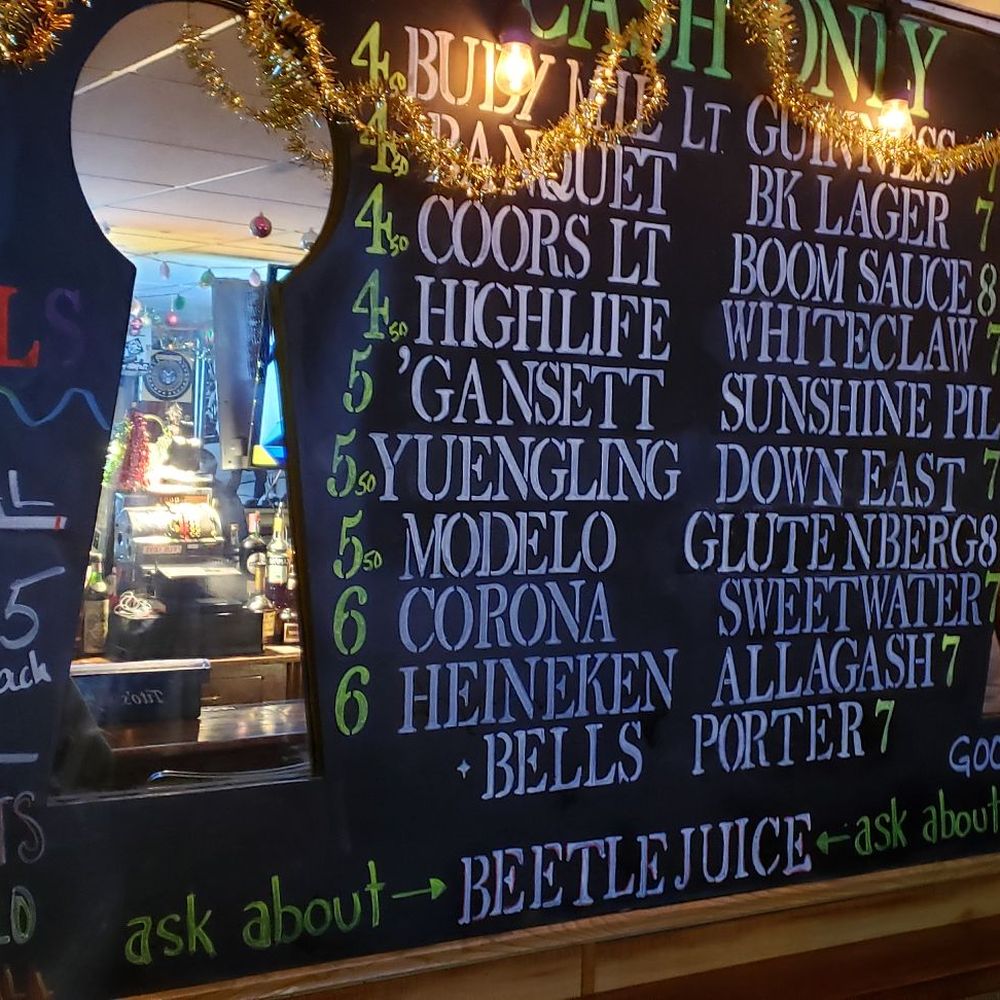 CASH ONLY
4.50 BUD/MIL LT
4.50 BANQUET
4.50 COORS LT
4.50 HIGHLIFE
5 'GANSETT
5.50 YUENGLING
5.50 MODELO
6 CORONA
6 HEINEKEN
GUINNESS 7
BK LAGER 7
BOOM SAUCE 8
WHITECLAW 7
SUNSHINE PIL
DOWN EAST 7
GLUTENBERG 8
SWEETWATER 7
ALLAGASH 7
BELLS PORTER 7
GOO
ask about → BEETLEJUICE ← ask about
LS
5
ach
TS
Tito's